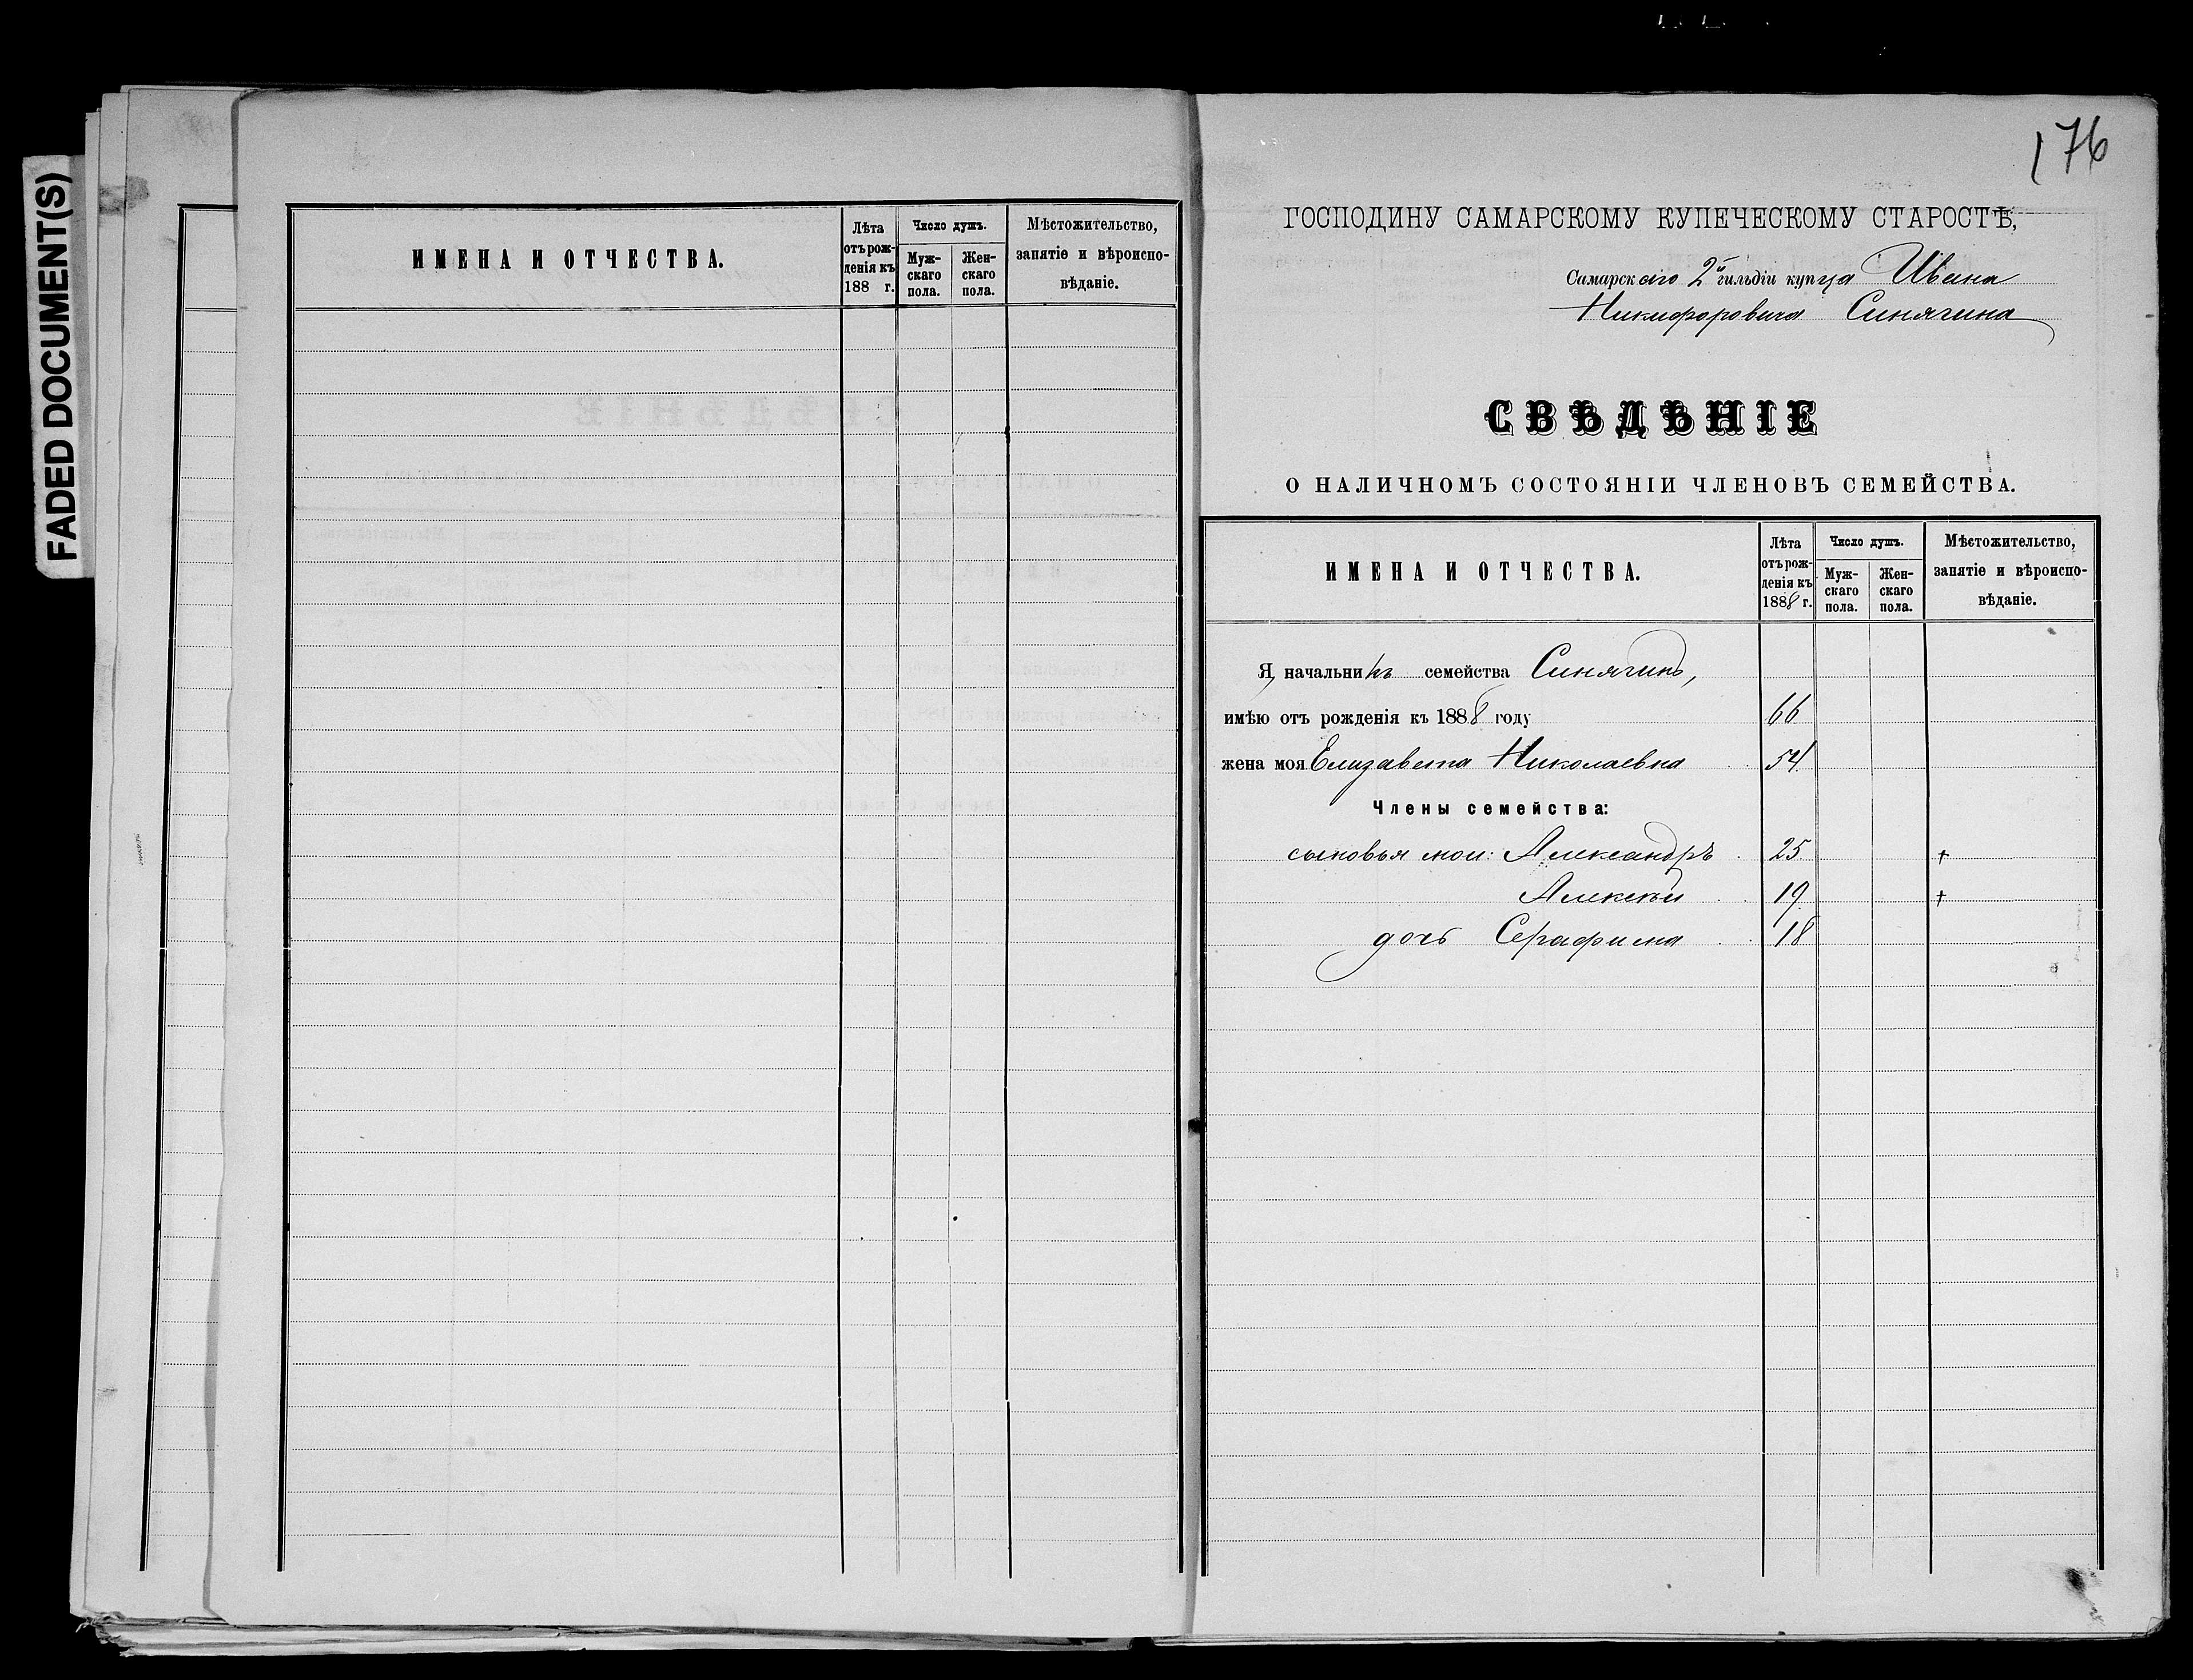 FADED DOCUMENT(S)
ИМЕНА И ОТЧЕСТВА.
Лѣта отъ рожденія къ 188 г.
Число душъ.
Мужскаго пола.
Женскаго пола.
Мѣстожительство, занятіе и вѣроисповѣданіе.
176
ГОСПОДИНУ САМАРСКОМУ КУПЕЧЕСКОМУ СТАРОСТѢ,
Самарскаго 2й гильдіи купца Ивана
Никифоровича Синягина
СВѢДѢНІЕ
О НАЛИЧНОМЪ СОСТОЯНІИ ЧЛЕНОВЪ СЕМЕЙСТВА.
ИМЕНА И ОТЧЕСТВА.
Лѣта отъ рожденія къ 1888 г.
Число душъ.
Мужскаго пола.
Женскаго пола.
Мѣстожительство, занятіе и вѣроисповѣданіе.
Я, начальникъ семейства Синягинъ,
имѣю отъ рожденія къ 1888 году 66
жена моя Елизавета Николаевна 54
Члены семейства:
сыновья мои: Александръ 25 †
Алексѣй 19 †
дочь Серафима 18